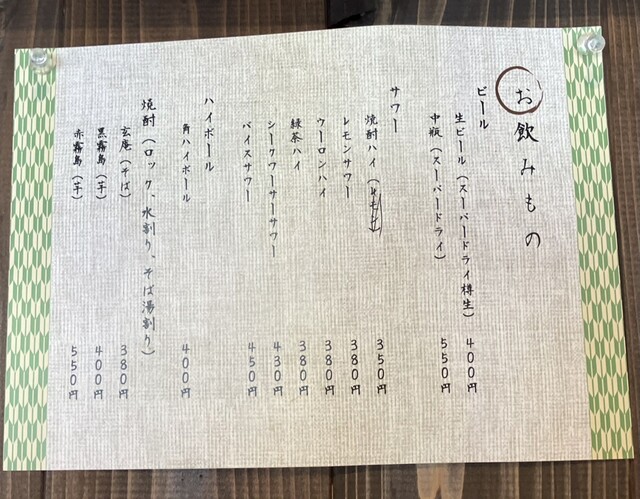 お飲みもの
ビール
生ビール（スーパードライ樽生）　４００円
中瓶（スーパードライ）　５５０円
サワー
焼酎ハイ　３５０円
レモンサワー　３８０円
ウーロンハイ　３８０円
緑茶ハイ　３８０円
シークワーサーサワー　４３０円
バイスサワー　４５０円
ハイボール
角ハイボール　４００円
焼酎（ロック、水割り、そば湯割り）
玄庵（そば）　３８０円
黒霧島（芋）　４００円
赤霧島（芋）　５５０円